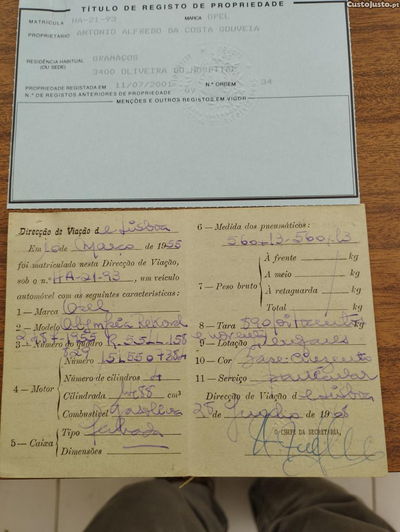 CustoJusto.pt
TÍTULO DE REGISTO DE PROPRIEDADE
MATRÍCULA HA-21-93 MARCA OPEL
PROPRIETÁRIO ANTONIO ALFREDO DA COSTA GOUVEIA
RESIDÊNCIA HABITUAL GRAMAÇOS
(OU SEDE)
3400 OLIVEIRA DO HOSPITAL
PROPRIEDADE REGISTADA EM 11/07/2001 34
N.º DE REGISTOS ANTERIORES DE PROPRIEDADE 09
MENÇÕES E OUTROS REGISTOS EM VIGOR
Direcção de Viação de Lisboa
Em 10 de Março de 1955
foi matriculado nesta Direcção de Viação,
sob o n.º HA-21-93, um veículo
automóvel com as seguintes características:
1 — Marca Opel
2 — Modelo Olympia Rekord
3 — Número do quadro
Número
Número de cilindros 4
4 — Motor
Cilindrada 1488 cm3
Combustível Gasolina
5 — Caixa
Tipo Fechada
Dimensões
6 — Medida dos pneumáticos:
560-13-560-13
7 — Peso bruto
À frente kg
A meio kg
À retaguarda kg
Total kg
8 — Tara 890
9 — Lotação
10 — Cor
11 — Serviço particular
Direcção de Viação de Lisboa
de Junho de 19
O CHEFE DA SECRETARIA,